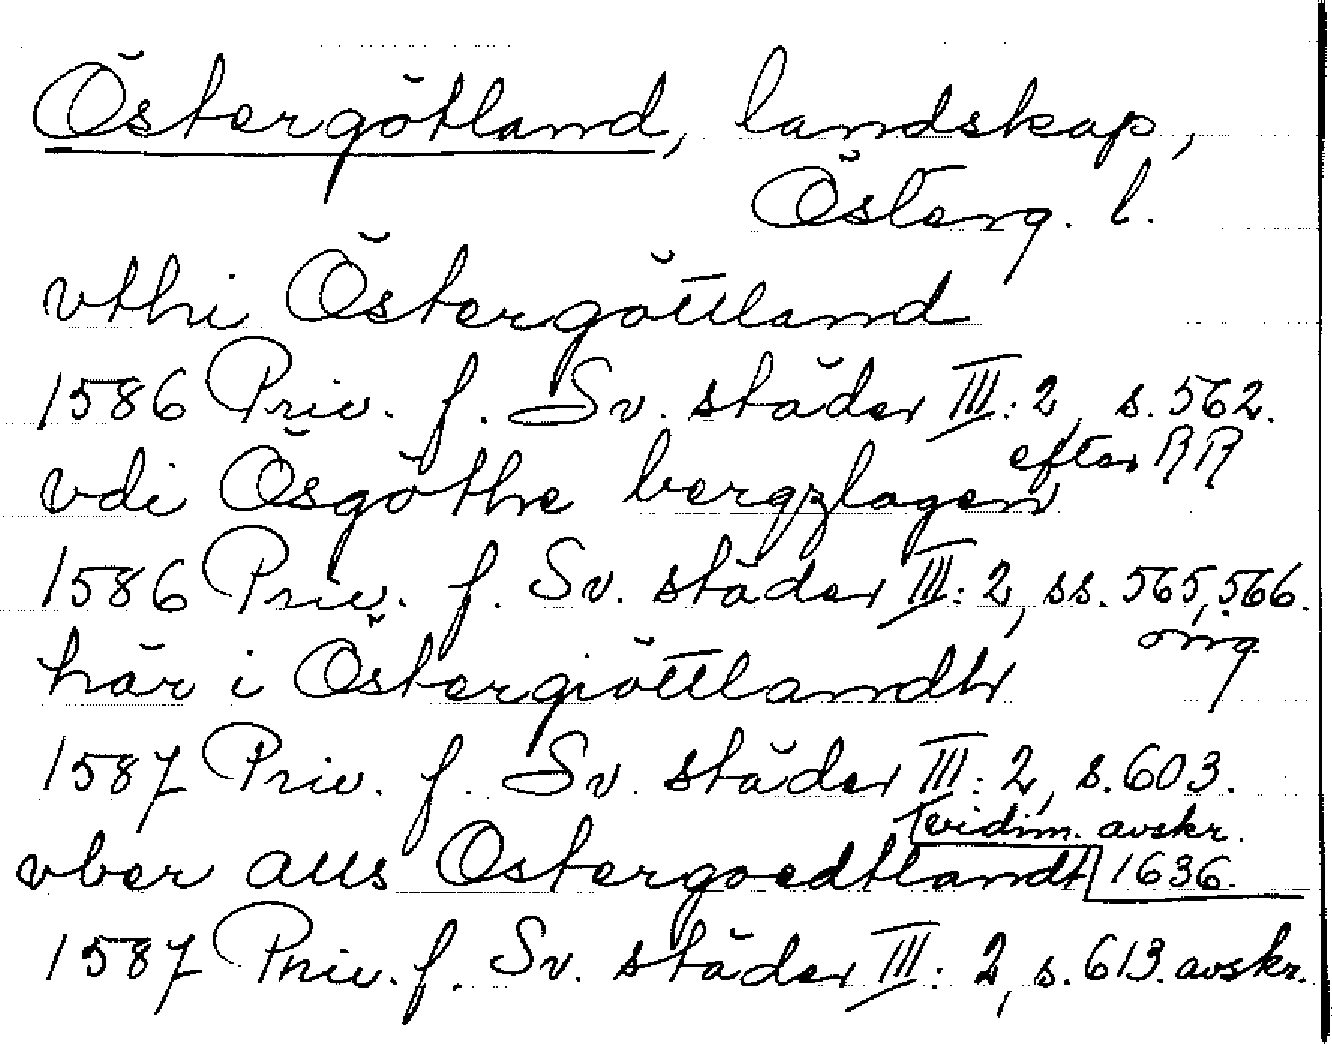 Östergötland, landskap,
Österg. l.
vthi Östergöttland
1586 Priv. f. Sv. städer III: 2, s. 562.
efter RR
vdi Ösgöthe bergzlagen
1586 Priv. f. Sv. städer III: 2, ss. 565, 566.
orig
här i Östergiöttlandh
1587 Priv. f. Sv. städer III: 2, s. 603.
vidim. avskr.
1636.
vber aus Ostergoedtlandt
1587 Priv. f. Sv. städer III: 2, s. 613. avskr.